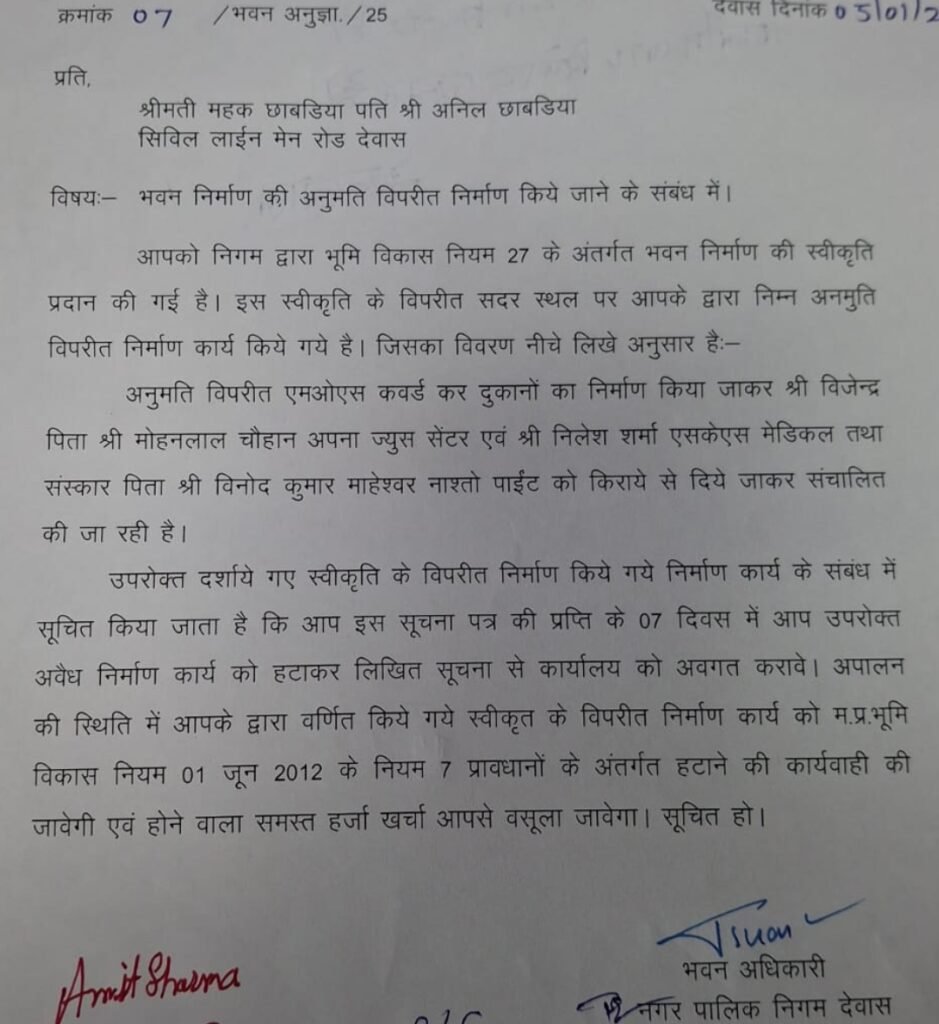 क्रमांक 07 /भवन अनुज्ञा./25
देवास दिनांक 05/01/2
प्रति,
श्रीमती महक छाबडिया पति श्री अनिल छाबडिया
सिविल लाईन मेन रोड देवास
विषयः– भवन निर्माण की अनुमति विपरीत निर्माण किये जाने के संबंध में।
आपको निगम द्वारा भूमि विकास नियम 27 के अंतर्गत भवन निर्माण की स्वीकृति
प्रदान की गई है। इस स्वीकृति के विपरीत सदर स्थल पर आपके द्वारा निम्न अनमुति
विपरीत निर्माण कार्य किये गये है। जिसका विवरण नीचे लिखे अनुसार हैः–
अनुमति विपरीत एमओएस कवर्ड कर दुकानों का निर्माण किया जाकर श्री विजेन्द्र
पिता श्री मोहनलाल चौहान अपना ज्युस सेंटर एवं श्री निलेश शर्मा एसकेएस मेडिकल तथा
संस्कार पिता श्री विनोद कुमार माहेश्वर नाश्तो पाईंट को किराये से दिये जाकर संचालित
की जा रही है।
उपरोक्त दर्शाये गए स्वीकृति के विपरीत निर्माण किये गये निर्माण कार्य के संबंध में
सूचित किया जाता है कि आप इस सूचना पत्र की प्रप्ति के 07 दिवस में आप उपरोक्त
अवैध निर्माण कार्य को हटाकर लिखित सूचना से कार्यालय को अवगत करावे। अपालन
की स्थिति में आपके द्वारा वर्णित किये गये स्वीकृत के विपरीत निर्माण कार्य को म.प्र.भूमि
विकास नियम 01 जून 2012 के नियम 7 प्रावधानों के अंतर्गत हटाने की कार्यवाही की
जावेगी एवं होने वाला समस्त हर्जा खर्चा आपसे वसूला जावेगा। सूचित हो।
Amit Sharma
भवन अधिकारी
नगर पालिक निगम देवास